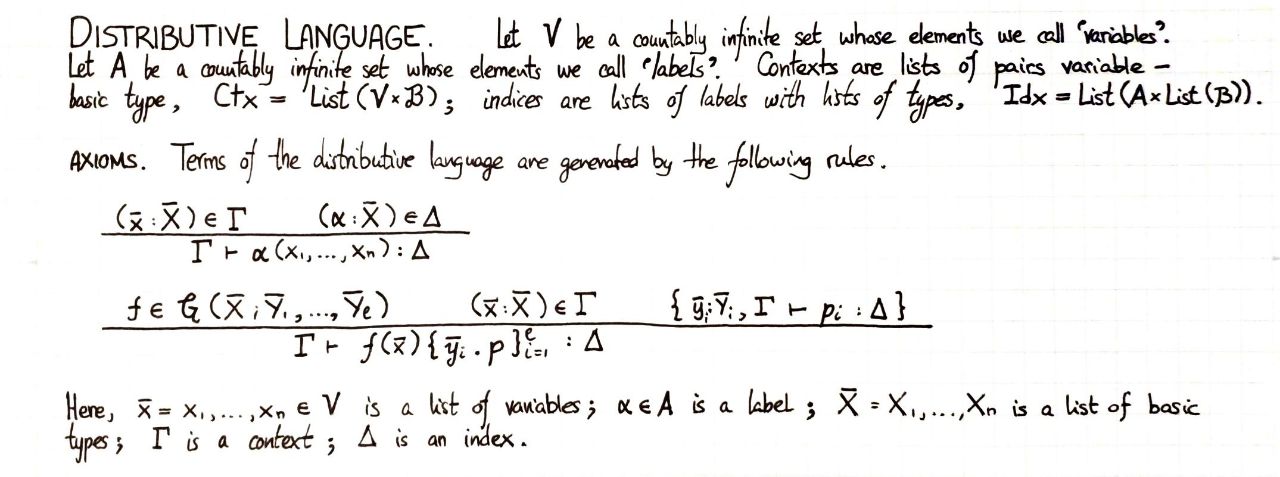 DISTRIBUTIVE LANGUAGE. Let V be a countably infinite set whose elements we call "variables".
Let A be a countably infinite set whose elements we call "labels". Contexts are lists of pairs variable –
basic type, Ctx = List (V×B); indices are lists of labels with lists of types, Idx = List (A×List(B)).
AXIOMS. Terms of the distributive language are generated by the following rules.
(x̄ : X̄) ∈ Γ (α : X̄) ∈ Δ
Γ ⊢ α(x₁,...,xₙ) : Δ
f ∈ G (X̄ ; Ȳ₁,...,Ȳₑ) (x̄ : X̄) ∈ Γ { ȳᵢ:Ȳᵢ, Γ ⊢ pᵢ : Δ }
Γ ⊢ f(x̄) { ȳᵢ . p }ᵉᵢ₌₁ : Δ
Here, x̄ = x₁,...,xₙ ∈ V is a list of variables; α ∈ A is a label ; X̄ = X₁,...,Xₙ is a list of basic
types ; Γ is a context ; Δ is an index .